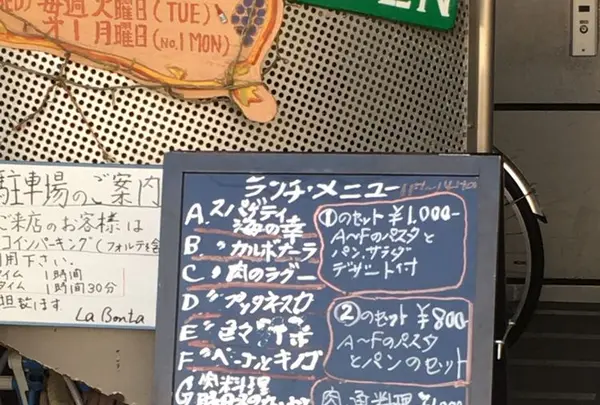 毎週火曜日(TUE)
月曜日(No.1 MON)
EN
駐車場のご案内
ご来店のお客様は
コインパーキング(フォルテを含
用下さい.
タイム 1時間
タイム 1時間30分
担致します
La Bonta
ランチ・メニュー
A. スパゲティ
海の幸
B 〃 カルボナーラ
C 〃 肉のラグー
D 〃 プッタネスカ
E 〃
F 〃 ベーコンとキノコ
G 肉料理
①のセット ¥1,000-
A〜Fのパスタと
パン、サラダ
デザート付
②のセット ¥800-
A〜Fのパスタ
とパンのセット
肉魚料理